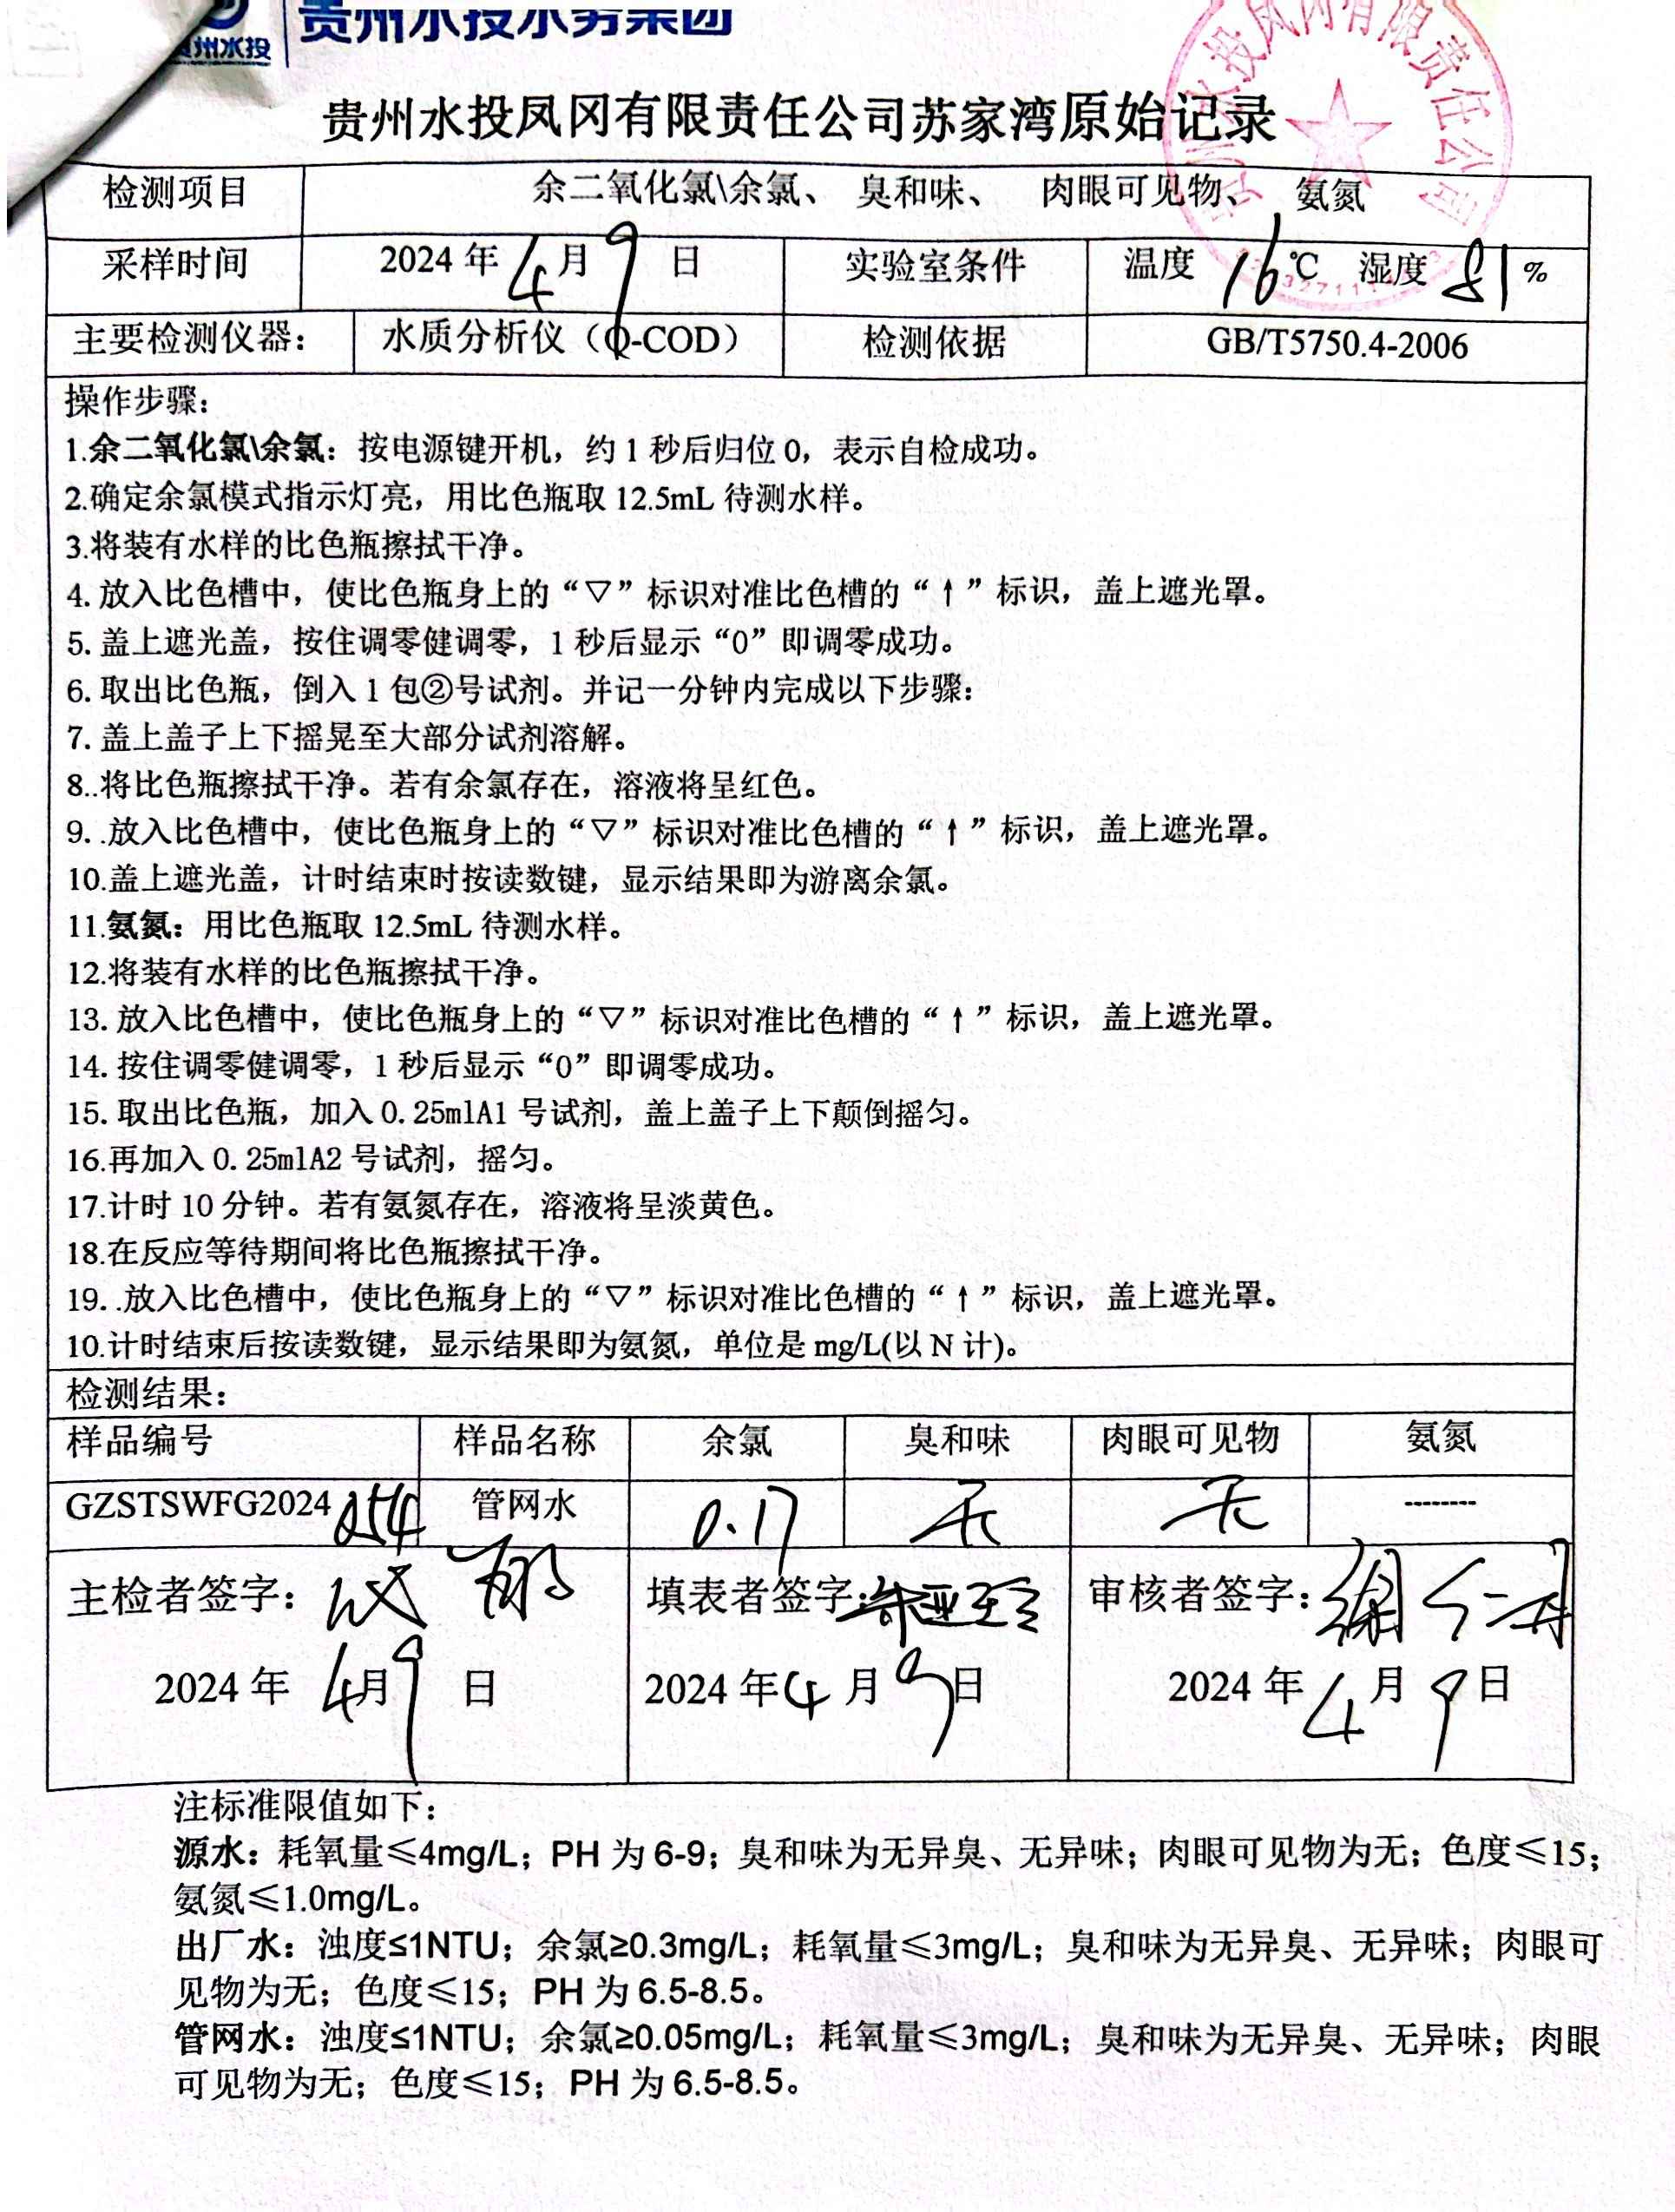 贵州水投水务集团
州水投
贵州水投凤冈有限责任公司苏家湾原始记录
检测项目 余二氧化氯\余氯、 臭和味、 肉眼可见物、 氨氮
采样时间 2024 年 4 月 9 日 实验室条件 温度 16 ℃ 湿度 81 %
主要检测仪器： 水质分析仪（Q-COD） 检测依据 GB/T5750.4-2006
操作步骤：
1.余二氧化氯\余氯：按电源键开机，约 1 秒后归位 0，表示自检成功。
2.确定余氯模式指示灯亮，用比色瓶取 12.5mL 待测水样。
3.将装有水样的比色瓶擦拭干净。
4. 放入比色槽中，使比色瓶身上的“▽”标识对准比色槽的“↑”标识，盖上遮光罩。
5. 盖上遮光盖，按住调零健调零，1 秒后显示“0”即调零成功。
6. 取出比色瓶，倒入 1 包②号试剂。并记一分钟内完成以下步骤：
7. 盖上盖子上下摇晃至大部分试剂溶解。
8..将比色瓶擦拭干净。若有余氯存在，溶液将呈红色。
9. .放入比色槽中，使比色瓶身上的“▽”标识对准比色槽的“↑”标识，盖上遮光罩。
10.盖上遮光盖，计时结束时按读数键，显示结果即为游离余氯。
11.氨氮：用比色瓶取 12.5mL 待测水样。
12.将装有水样的比色瓶擦拭干净。
13. 放入比色槽中，使比色瓶身上的“▽”标识对准比色槽的“↑”标识，盖上遮光罩。
14. 按住调零健调零，1 秒后显示“0”即调零成功。
15. 取出比色瓶，加入 0.25mlA1 号试剂，盖上盖子上下颠倒摇匀。
16.再加入 0.25mlA2 号试剂，摇匀。
17.计时 10 分钟。若有氨氮存在，溶液将呈淡黄色。
18.在反应等待期间将比色瓶擦拭干净。
19. .放入比色槽中，使比色瓶身上的“▽”标识对准比色槽的“↑”标识，盖上遮光罩。
10.计时结束后按读数键，显示结果即为氨氮，单位是 mg/L(以 N 计)。
检测结果：
样品编号 样品名称 余氯 臭和味 肉眼可见物 氨氮
GZSTSWFG2024 054 管网水 0.17 无 无 --------
主检者签字： 填表者签字： 审核者签字：
2024 年 4 月 9 日 2024 年 4 月 9 日 2024 年 4 月 9 日
注标准限值如下：
源水：耗氧量≤4mg/L；PH 为 6-9；臭和味为无异臭、无异味；肉眼可见物为无；色度≤15；
氨氮≤1.0mg/L。
出厂水：浊度≤1NTU；余氯≥0.3mg/L；耗氧量≤3mg/L；臭和味为无异臭、无异味；肉眼可
见物为无；色度≤15；PH 为 6.5-8.5。
管网水：浊度≤1NTU；余氯≥0.05mg/L；耗氧量≤3mg/L；臭和味为无异臭、无异味；肉眼
可见物为无；色度≤15；PH 为 6.5-8.5。